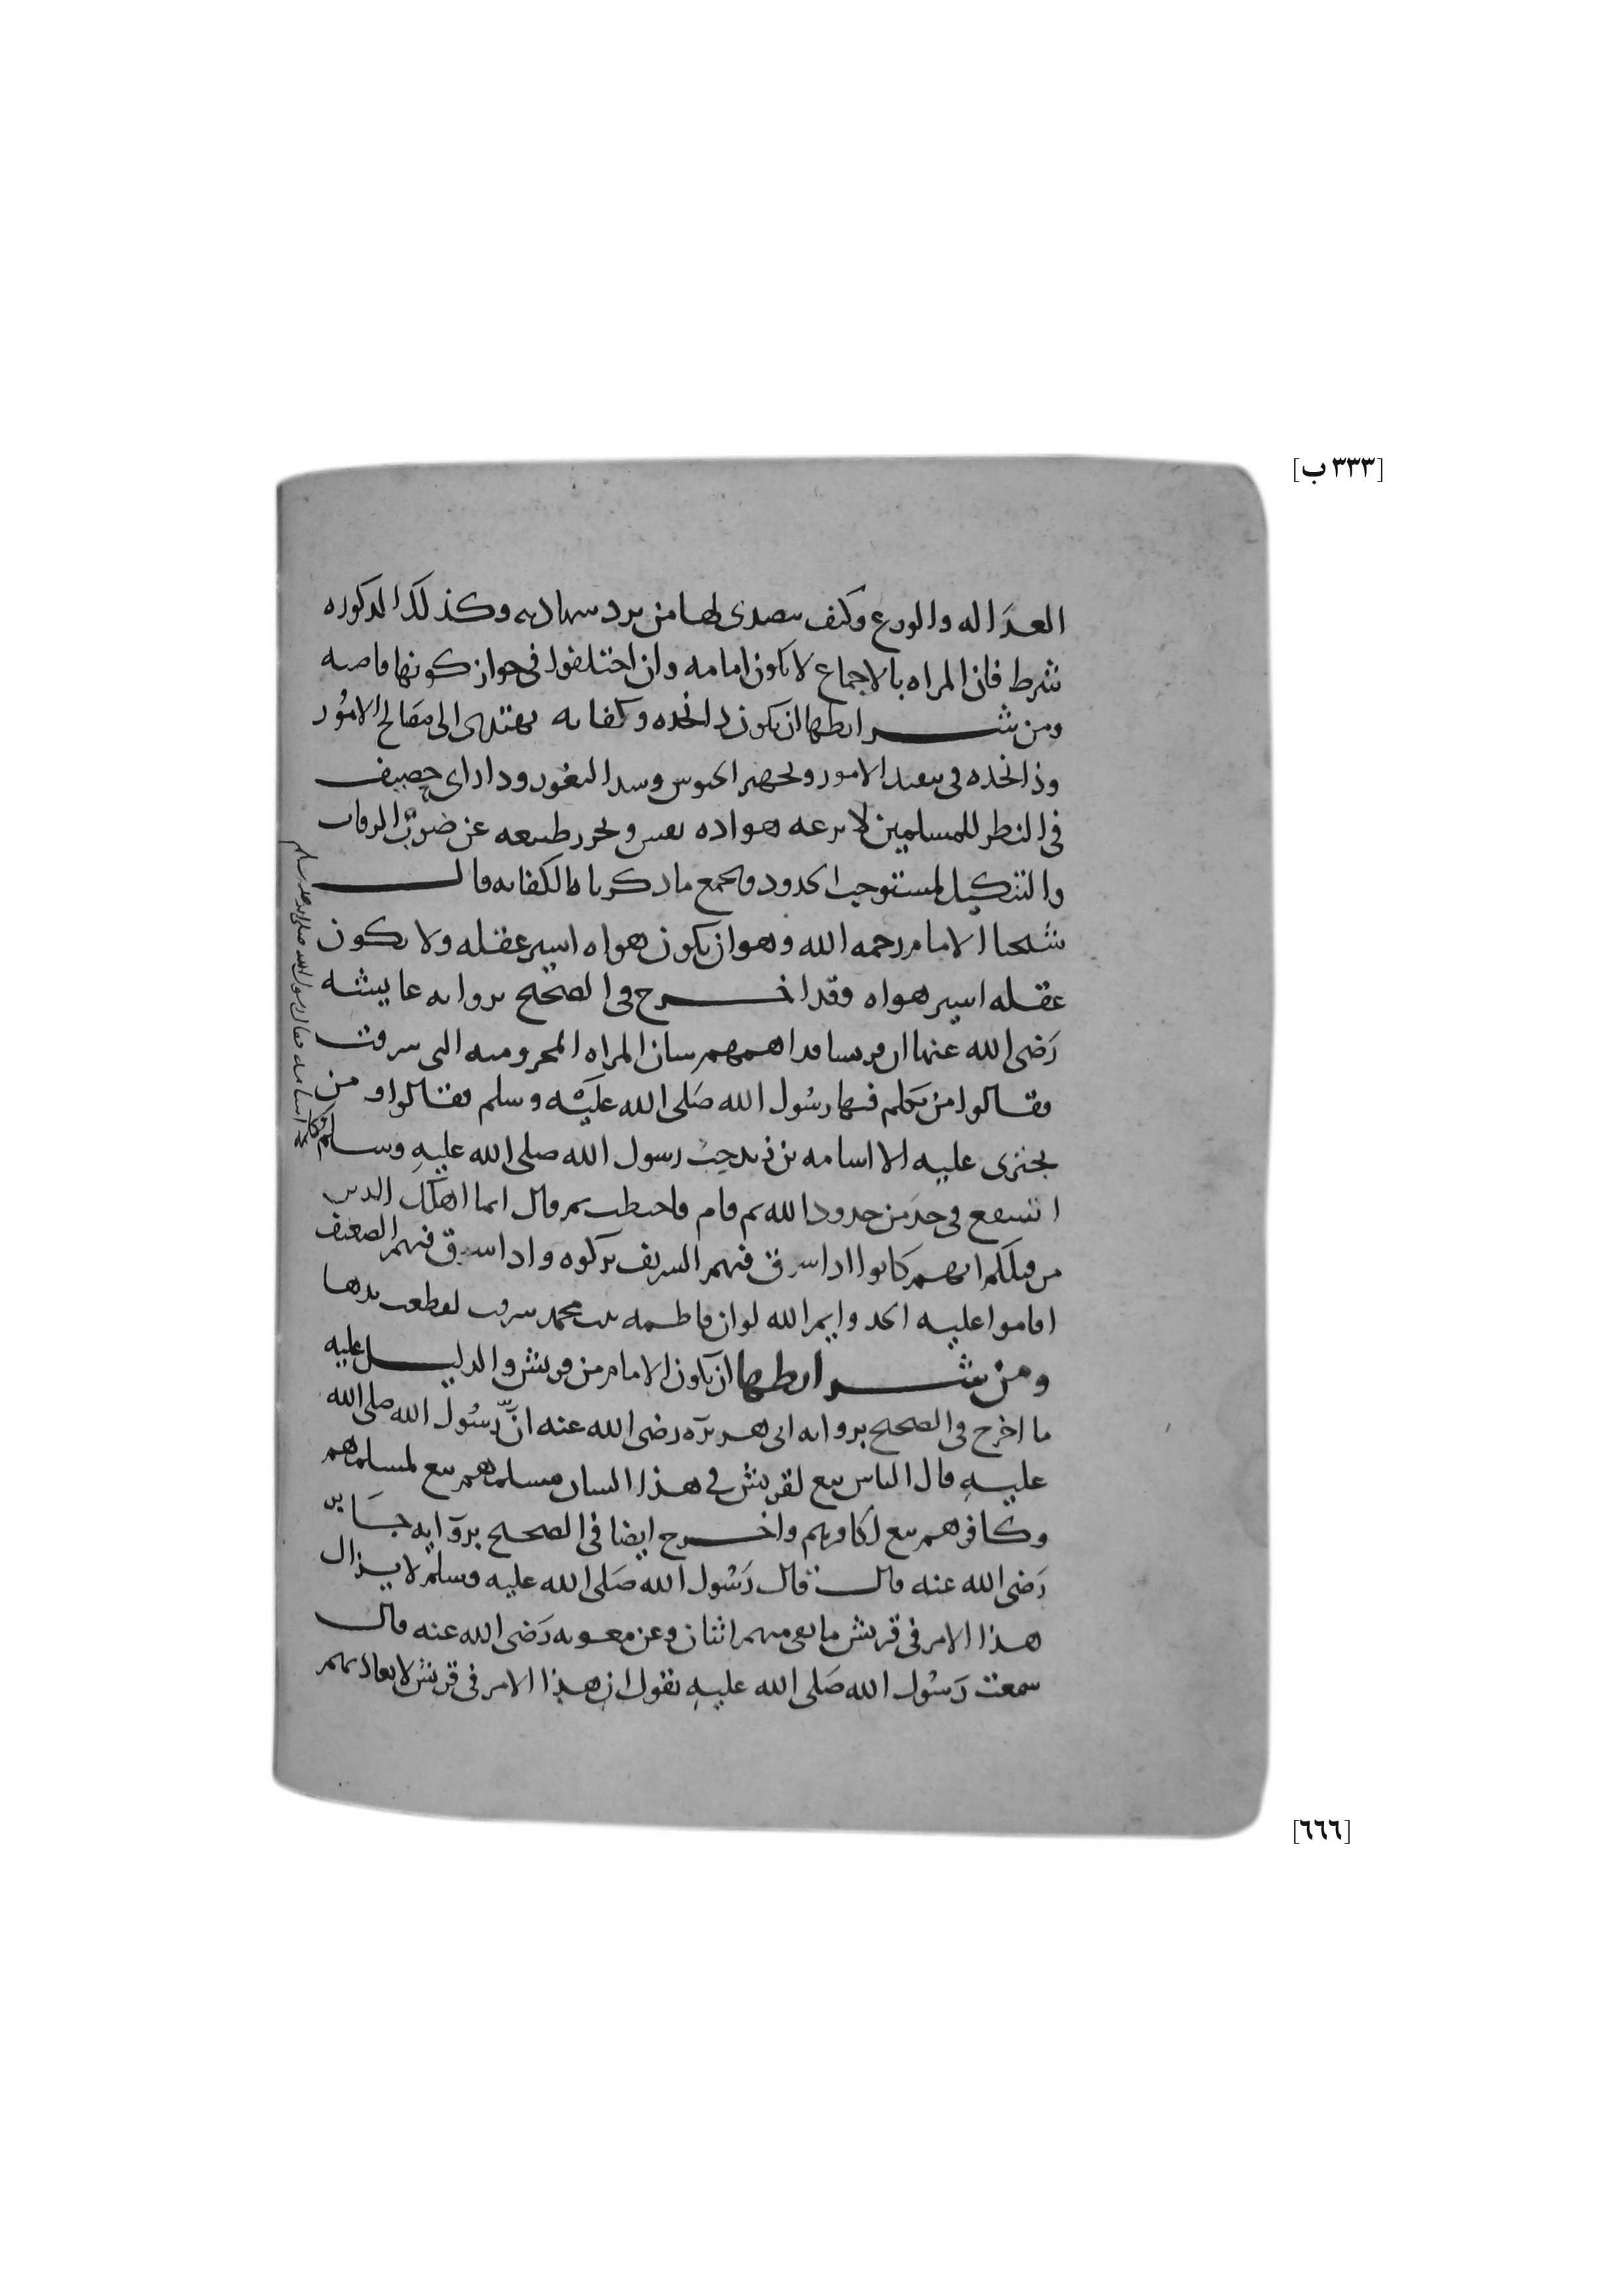 [٣٣٣ ب]
العدالة والورع وكيف يتصدى لها من يرد شهادته وكذلك الذكورة
شرط فان المراه بالاجماع لا تكون امامه وان اختلفوا في جواز كونها قاضيه
ومن شرايطها ان يكون ذا نجده وكفايه يهتدي الى مصالح الامور
وذا نجده في تنفيذ الامور وتجهيز الجيوش وسد الثغور وذا راي حصيف
في النظر للمسلمين لا تزعه هواده نفس وخور طبيعه عن ضرب الرقاب
والتنكيل لمستوجب الحدود ويجمع ما ذكرناه الكفايه قال
شيخنا الامام رحمه الله وهو ان يكون هواه اسير عقله ولا يكون
عقله اسير هواه وقد اخرج في الصحيح بروايه عايشه
رضى الله عنها ان قريشا قد اهمهم شان المراه المخزوميه التي سرقت
فقالوا من يكلم فيها رسول الله صلى الله عليه وسلم فقالوا ومن
يجتري عليه الا اسامه بن زيد حب رسول الله صلى الله عليه وسلم
فكلمه اسامه فقال رسول الله صلى الله عليه وسلم
اتشفع في حد من حدود الله ثم قام فاختطب ثم قال انما اهلك الذين
من قبلكم انهم كانوا اذا سرق فيهم الشريف تركوه واذا سرق فيهم الضعيف
اقاموا عليه الحد وايم الله لو ان فاطمه بنت محمد سرقت لقطعت يدها
ومن شرايطها ان يكون الامام من قريش والدليل عليه
ما اخرج في الصحيح بروايه ابى هريره رضى الله عنه ان رسول الله صلى الله
عليه قال الناس تبع لقريش في هذا الشان مسلمهم تبع لمسلمهم
وكافرهم تبع لكافرهم واخرج ايضا في الصحيح بروايه جابر
رضى الله عنه قال قال رسول الله صلى الله عليه وسلم لا يزال
هذا الامر في قريش ما بقي منهم اثنان وعن معويه رضى الله عنه قال
سمعت رسول الله صلى الله عليه يقول ان هذا الامر في قريش لا يعاديهم
[٦٦٦]